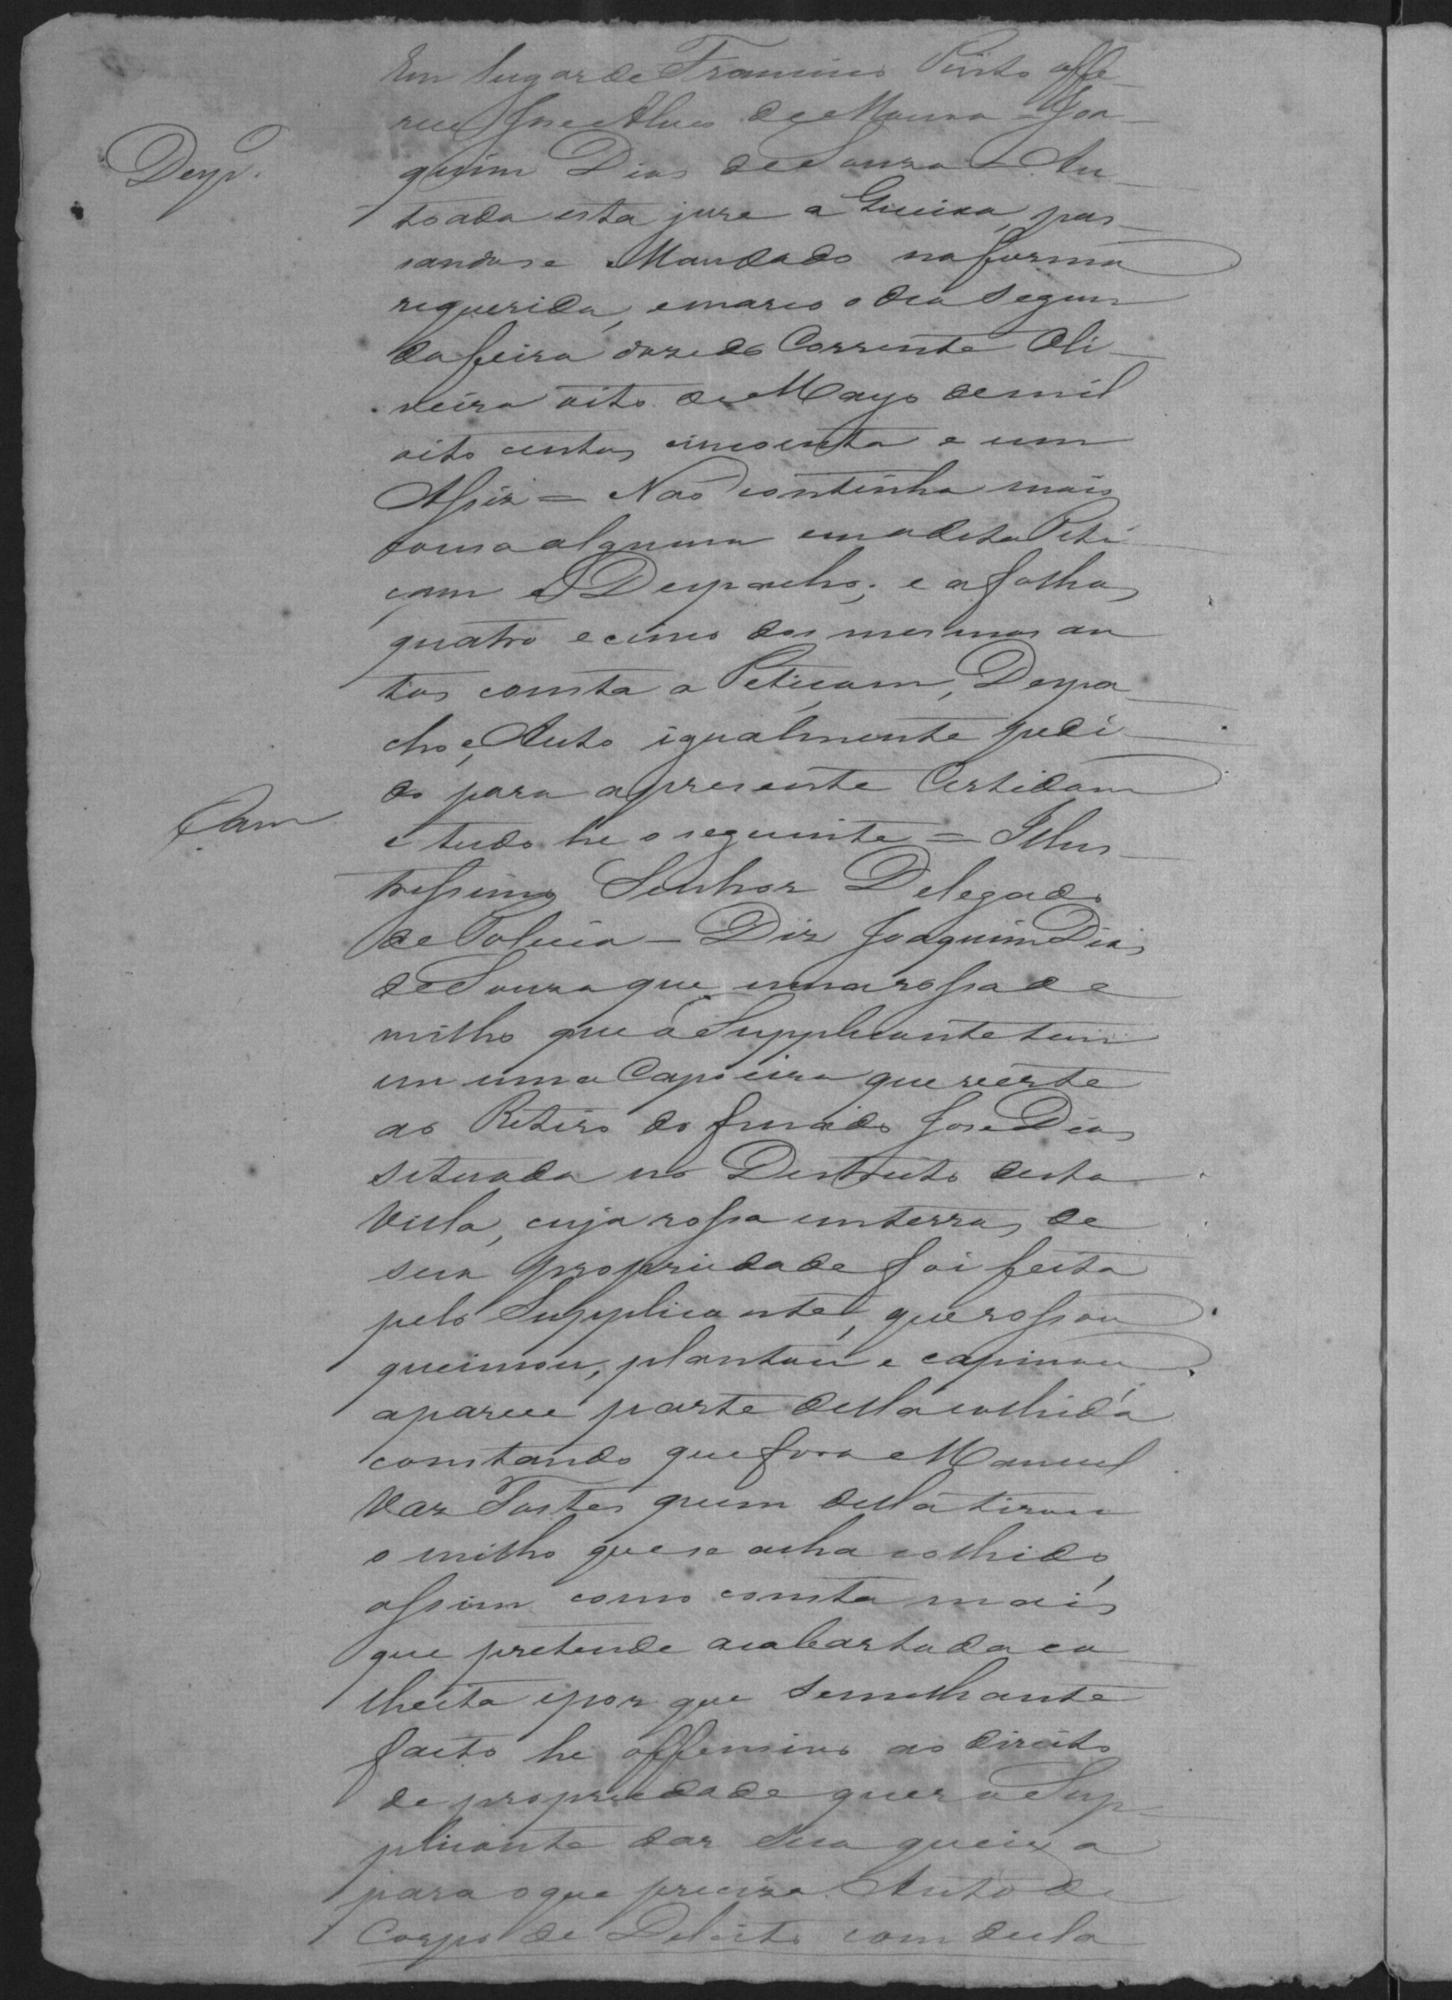 Em lugar de Francisco Pinto offe-
rece Jose Alves de Moura = Joa-
quim Dias de Souza = Au-
Desp.º
toada esta jure a Queixa, pas-
sandose Mandado na forma
requerida, emarco o dia segun
da feira doze do Corrente Oli-
veira oito de Mayo de mil
oito centos cincoenta e um
Assis = Nao continha mais
cousa alguma em a dita Peti
çam e Despacho; e a folhas
quatro e cinco dos mesmos au
tos consta a Peticam, Despa-
cho e, Auto igualmente pedi-
do para a presente Certidam
Çam
e tudo he o seguinte = Illus-
trissimo Senhor Delegado
de Policia - Diz Joaquim Dias
de Souza que uma rossa de
milho que o Supplicante tem
em uma Capoeira que verte
ao Retiro do finado Jose Dias
situada no Destricto desta
Villa, cuja rossa em terras de
sua propriedade foi feita
pelo Supplicante, que rossou
queimou, plantou e capinou
aparece parte della colhida
constando que fora Manuel
Vaz Tostes quem della tirou
o milho que se acha colhido,
assim como consta mais
que pretende acabar toda co-
lheita epor que semelhante
facto he offensivo ao direito
de propriedade quer o Sup-
plicante dar sua queixa
para oque precisa Auto de
Corpo de Delicto com decla